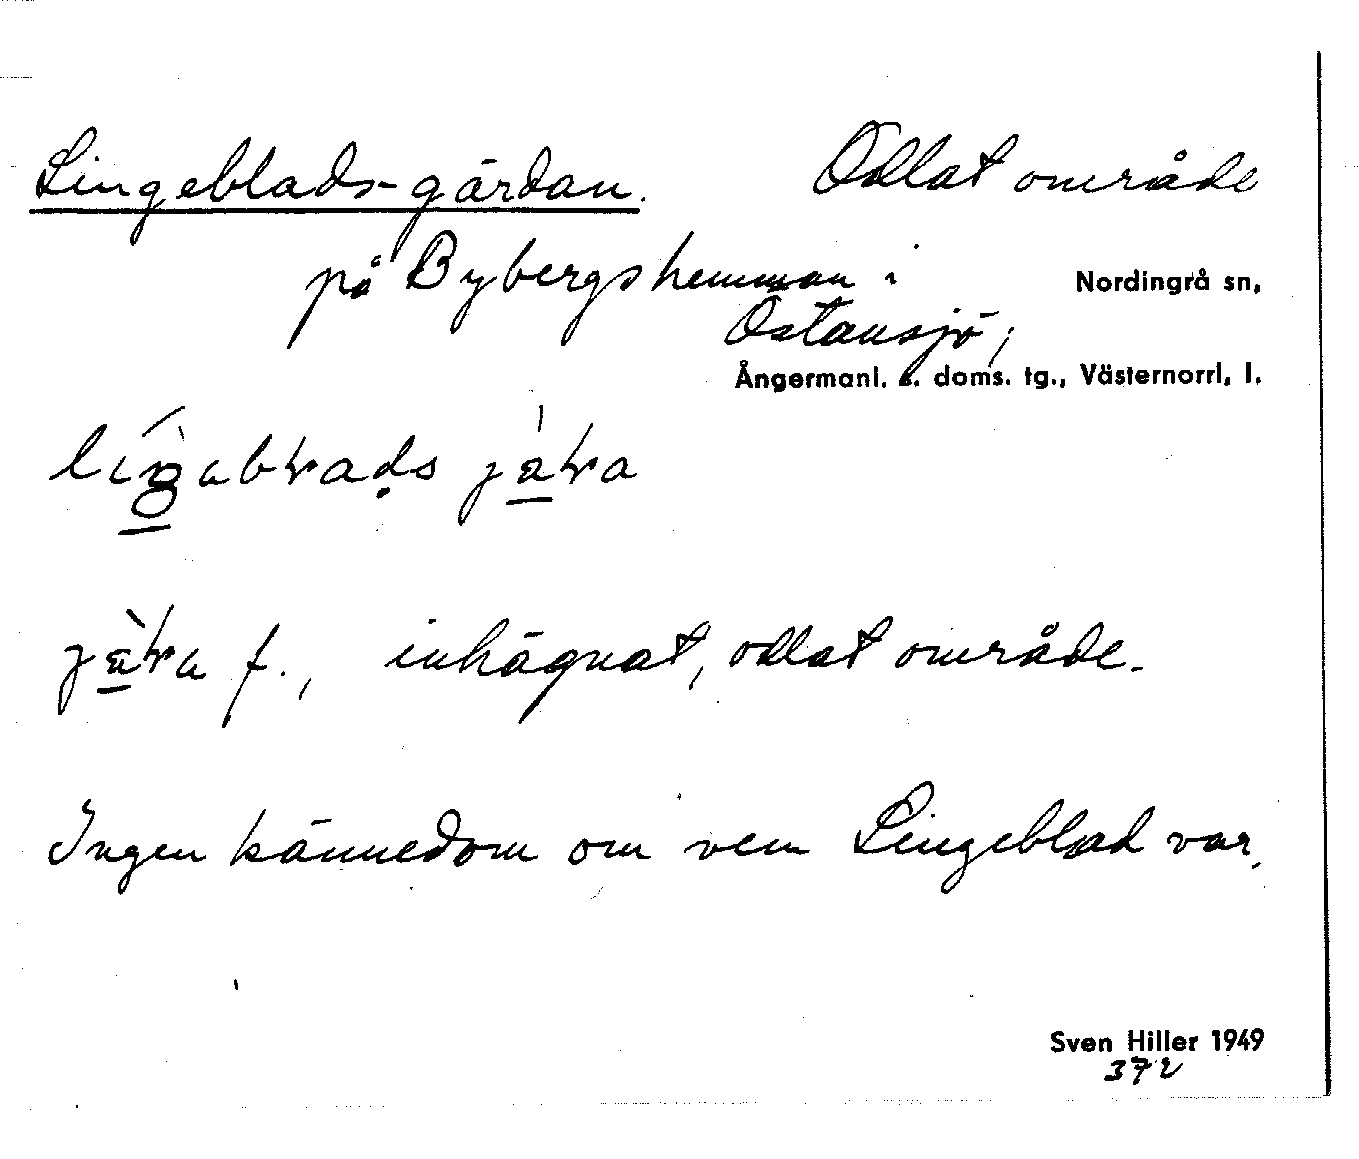 Lingeblads-gärdan. Odlat område
på Bybergshemman i Nordingrå sn,
Östansjö,
Ångermanl. s. doms. tg., Västernorrl. l.
Ingen kännedom om vem Lingeblad var.
f., inhägnat, odlat område.
Sven Hiller 1949
372